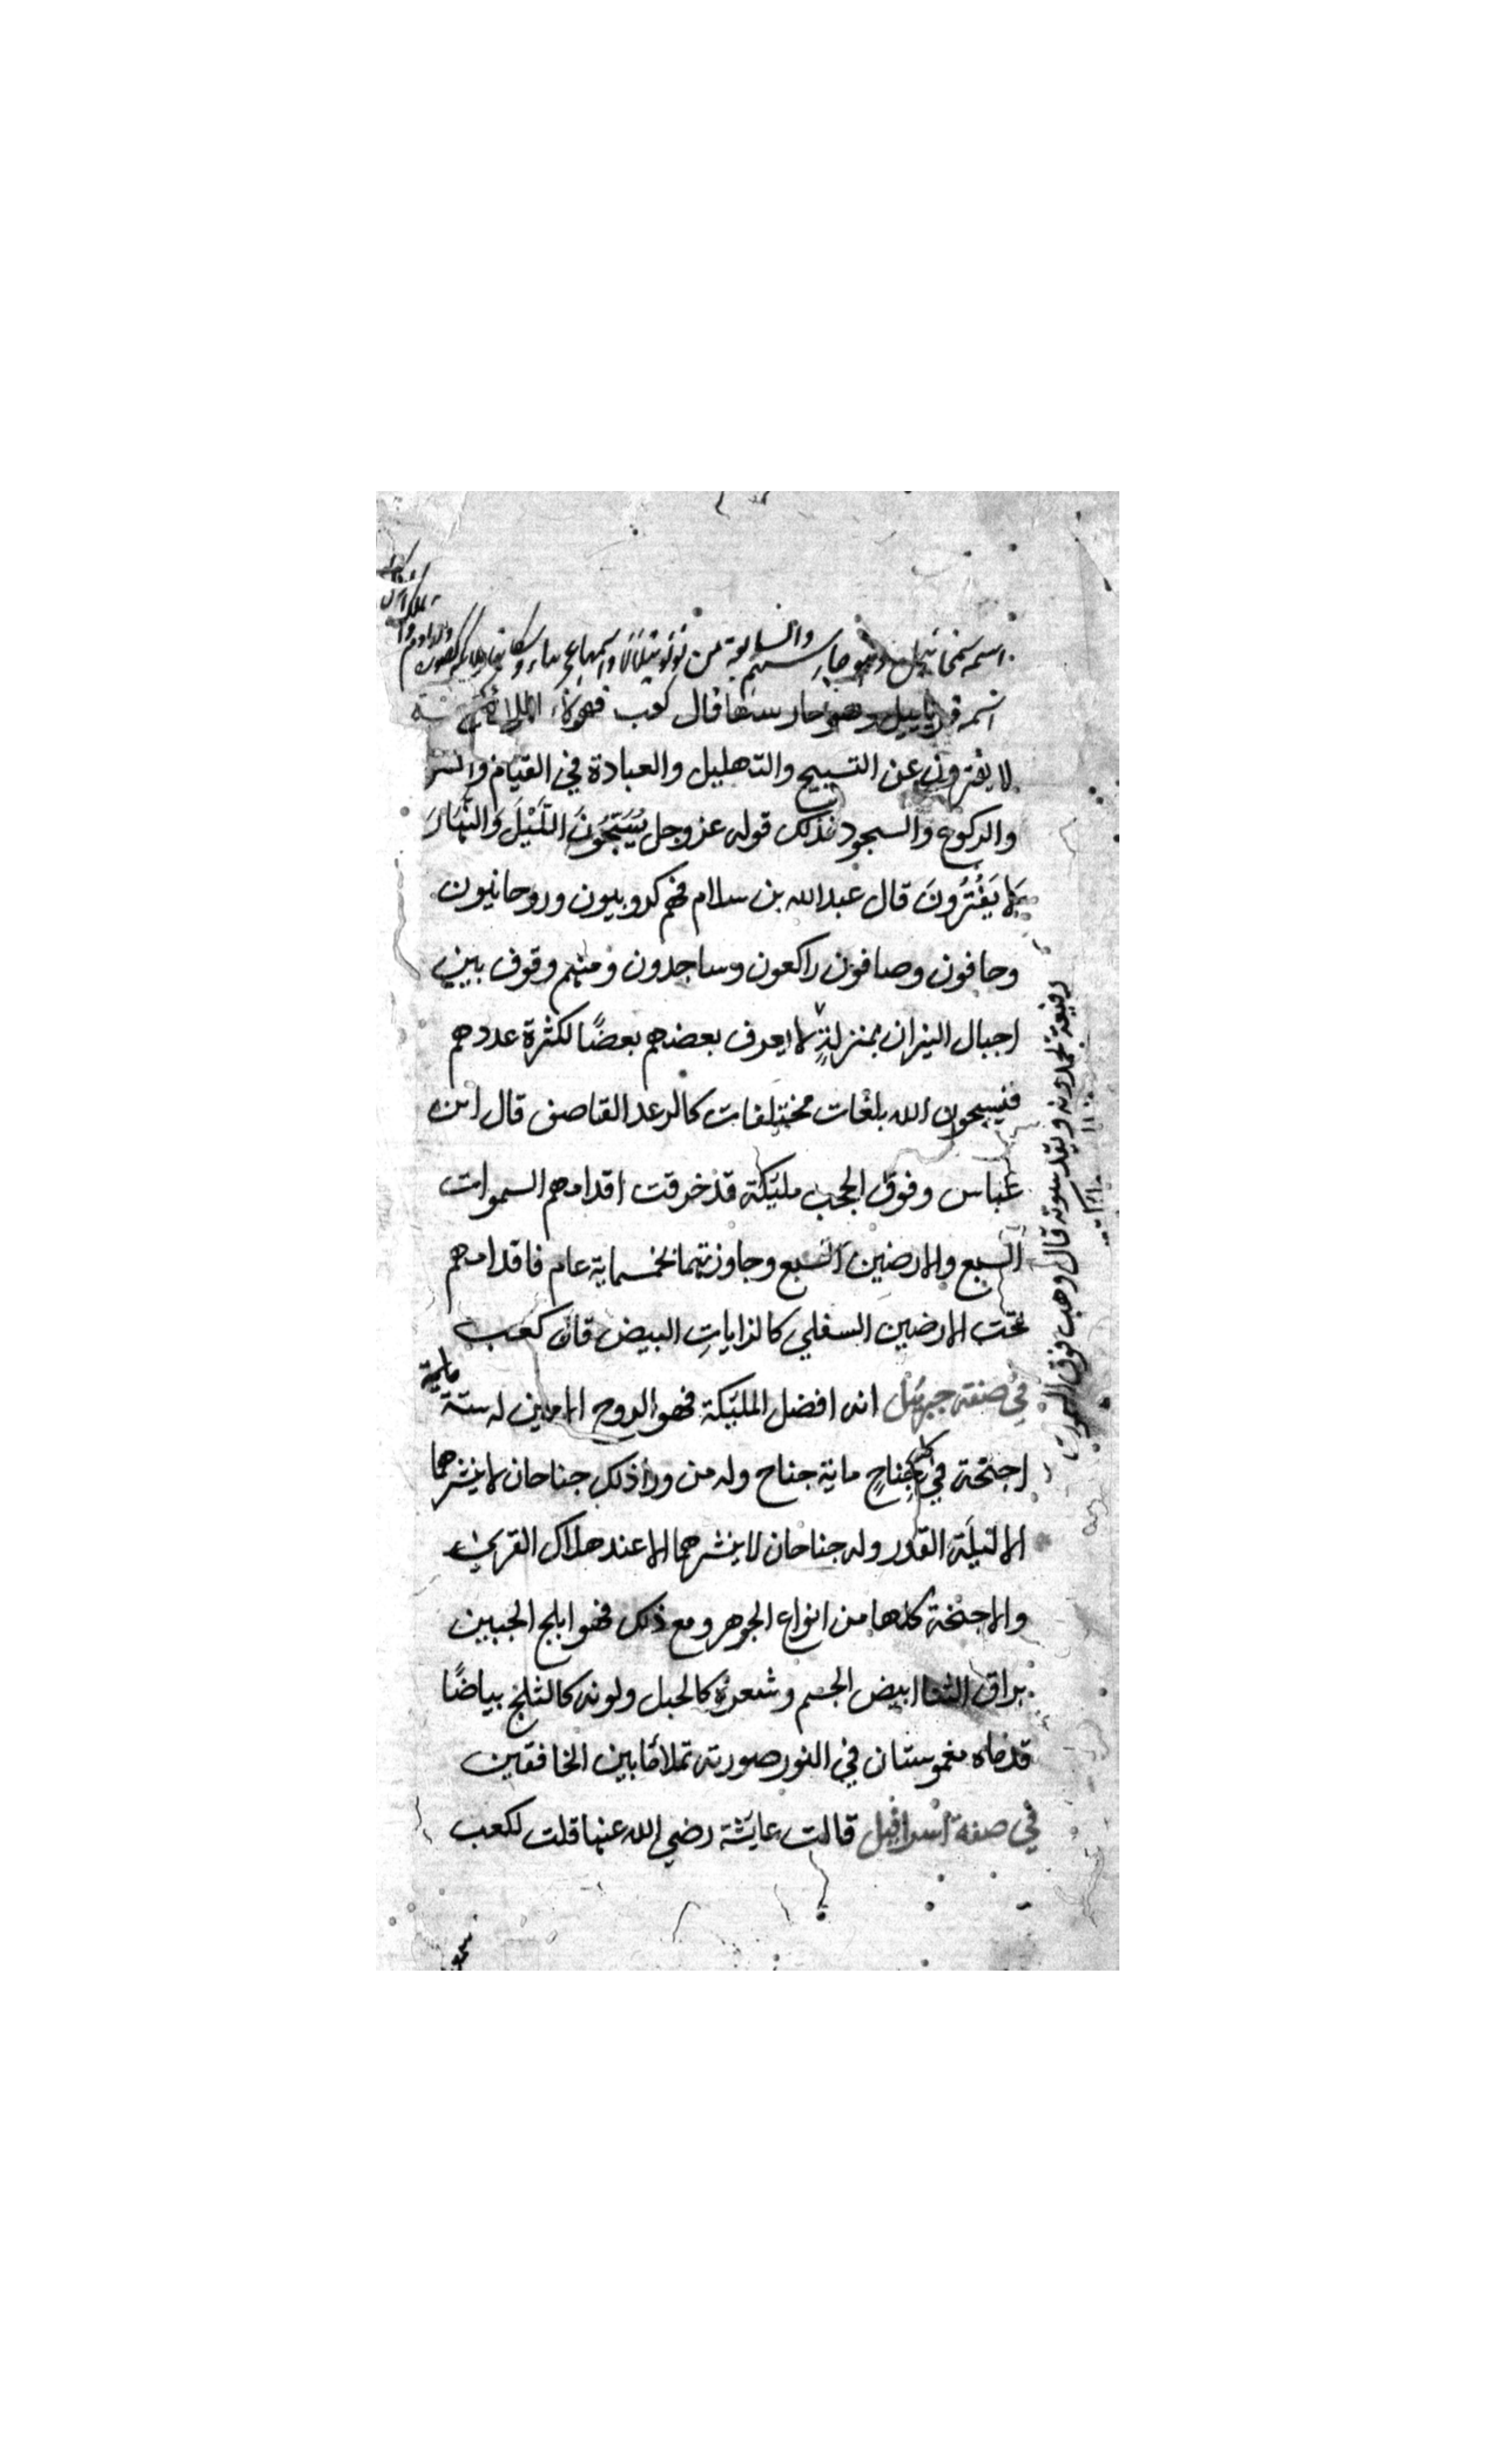 اسمه سمخائيل وهو خازنهم والسابعة من نور يتلالا واسمها عجيباء وسكانها ملائكة
اسمه فريابيل وهو خازنها قال كعب فهولاء الملائكة
لا يفترون عن التسبيح والتهليل والعبادة في القيام
والركوع والسجود فذلك قوله عز وجل يُسَبِّحُونَ اللَّيْلَ وَالنَّهَارَ
لَا يَفْتُرُونَ قال عبد الله بن سلام فهم كروبيون وروحانيون
وحافون وصافون راكعون وساجدون ومنهم وقوف بين
اجبال النيران بمنزلةٍ لا يعرف بعضهم بعضًا لكثرة عددهم
فيسبحون الله بلغات مختلفات كالرعد القاصف قال ابن
عباس وفوق الحجب مليكة قد خرقت اقدامهم السموات
السبع والارضين السبع وجاوزتهما بخمسماية عام فاقدامهم
تحت الارضين السفلي كالراياتِ البيض قال كعب
في صفة جبرئيل انه افضل المليكة فهو الروح الامين له ستة ماية
اجنحة في كل جناحٍ ماية جناح وله من ورا ذلك جناحان لا ينشرهما
الا ليلة القدر وله جناحان لا ينشرهما الا عند هلاك القري
والاجنحة كلها من انواع الجوهر ومع ذلك فهو ابلج الجبين
براق الثنايا ابيض الجسم وشعره كالحبل ولونه كالثلج بياضًا
قدماه مغموستان في النور صورته تملأ ما بين الخافقين
في صفة اسرافيل قالت عايشة رضي الله عنها قلت لكعب
ويقدسونه قال وهب فوق السموات